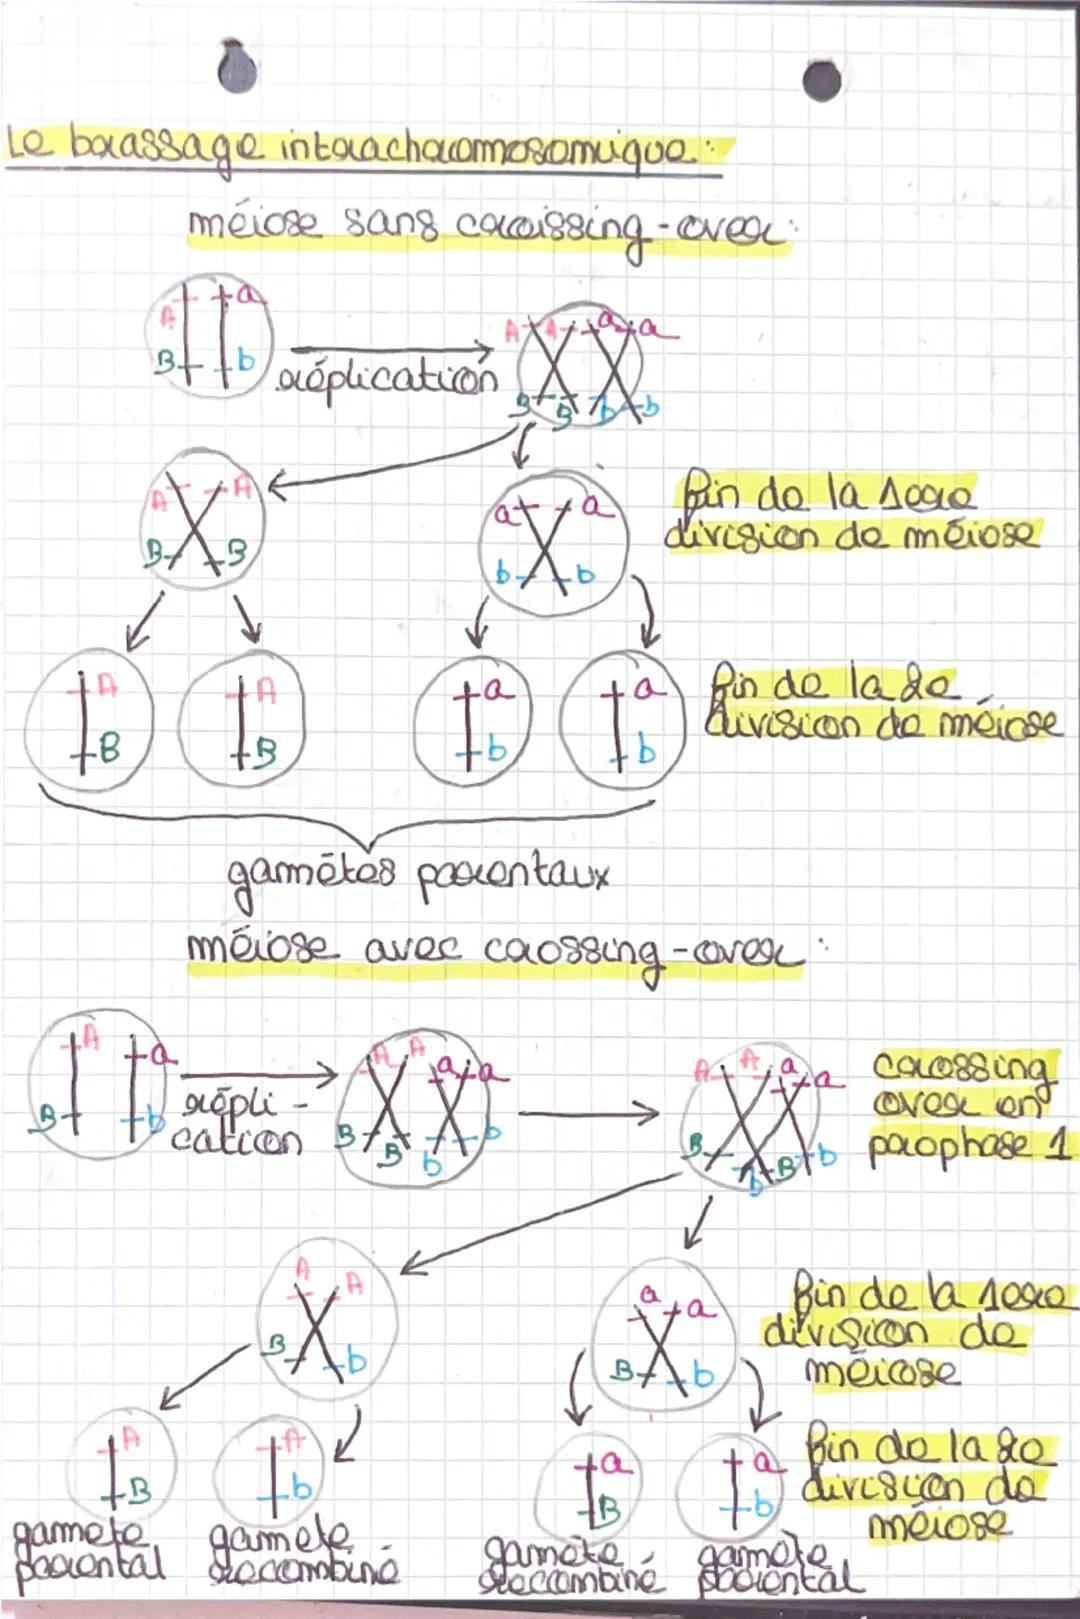 Le brassage intrachromosomique :
méiose sans croissing-over :
A a
B b
réplication
A A a a
B B b b
A A
B B
a a
b b
fin de la 1ère
division de méiose
A
B
A
B
a
b
a
b
fin de la 2e
division de méiose
gamètes parentaux
méiose avec crossing-over :
A a
B b
répli-
cation
A A a a
B B b b
A A a a
B b B b
crossing
over en
prophase 1
A A
B b
a a
B b
fin de la 1ère
division de
méiose
A
B
A
b
a
B
a
b
fin de la 2e
division de
méiose
gamète
parental
gamète
recombiné
gamète
recombiné
gamète
parental